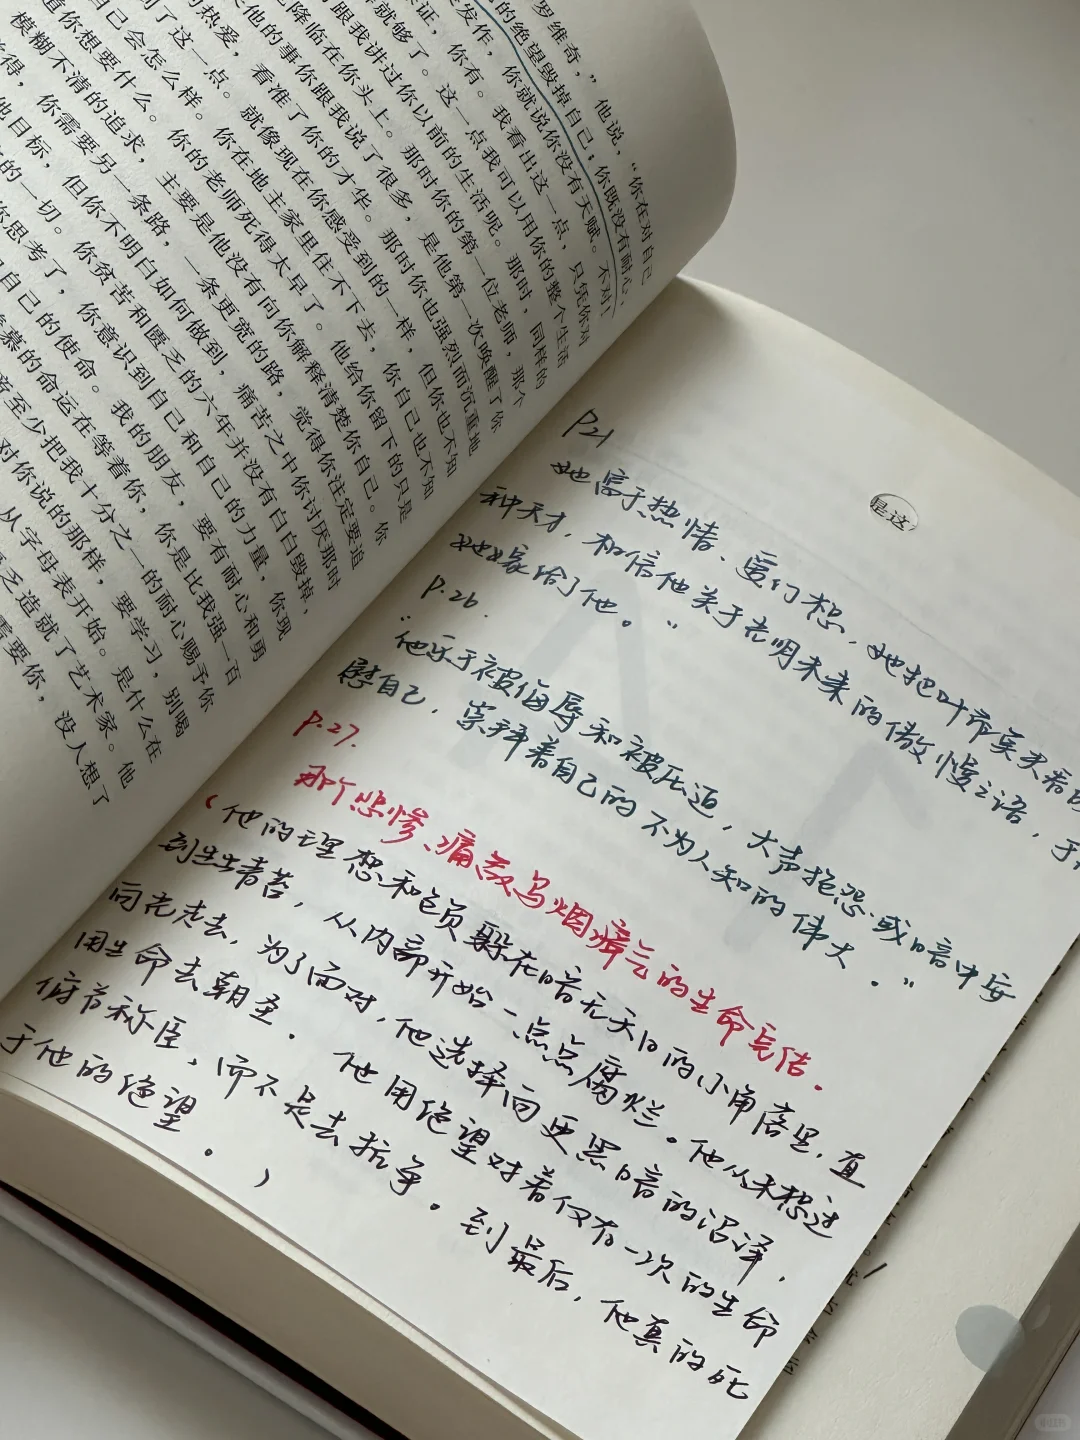 罗维奇，”他说，“你在对自己
的绝望毁掉自己；你既没有耐心，
发作，你就说你没有天赋。不对！
证，你有。我看出这一点，只凭你对
就够了。这一点我可以用你的整个生活
跟我讲过你以前的生活呢。那时，同样的
降临在你头上。那时你的第一位老师，那个
他的事你跟我说了很多，是他第一次唤醒了你
的热爱，看准了你的才华。那时你也强烈而沉重地
到了这一点。就像现在你感受到的一样，但你也不知
自己会怎么样。你在地主家里住不下去，你自己也不知
道你想要什么。你的老师死得太早了。他给你留下的只是
模糊不清的追求，主要是他没有向你解释清楚你自己。你
得，你需要另一条路，一条更宽的路，觉得你注定要追
他目标，但你不明白如何做到，痛苦之中你讨厌那时
的一切。你贫苦和匮乏的六年并没有白白毁掉，
你思考了，你意识到自己和自己的力量，你现
自己的使命。我的朋友，要有耐心和勇
慕的命运在等着你，你是比我强一百
帝至少把我十分之一的耐心赐予你
对你说的那样，要学习，别喝
从字母表开始。是什么在
乏造就了艺术家。他
需要你，没人想了
是这
P21
她富于热情、爱幻想，她把叶希莫夫看
种天才，相信他关于光明未来的傲慢之语，于
她嫁给了他。”
P.26.
“他乐于被侮辱和被压迫，大声抱怨或暗中安
慰自己，崇拜着自己的不为人知的伟大。”
P.27.
那个悲惨、痛苦、乌烟瘴气的生命完结。
（他的理想和抱负躲在暗无天日的小角落里，直
到生出青苔，从内部开始一点点腐烂。他从未想过
向光走去，为了面对，他选择向更黑暗的沼泽，
用生命去朝圣。他用绝望对着仅有一次的生命
俯首称臣，而不是去抗争。到最后，他真的死
于他的绝望。）